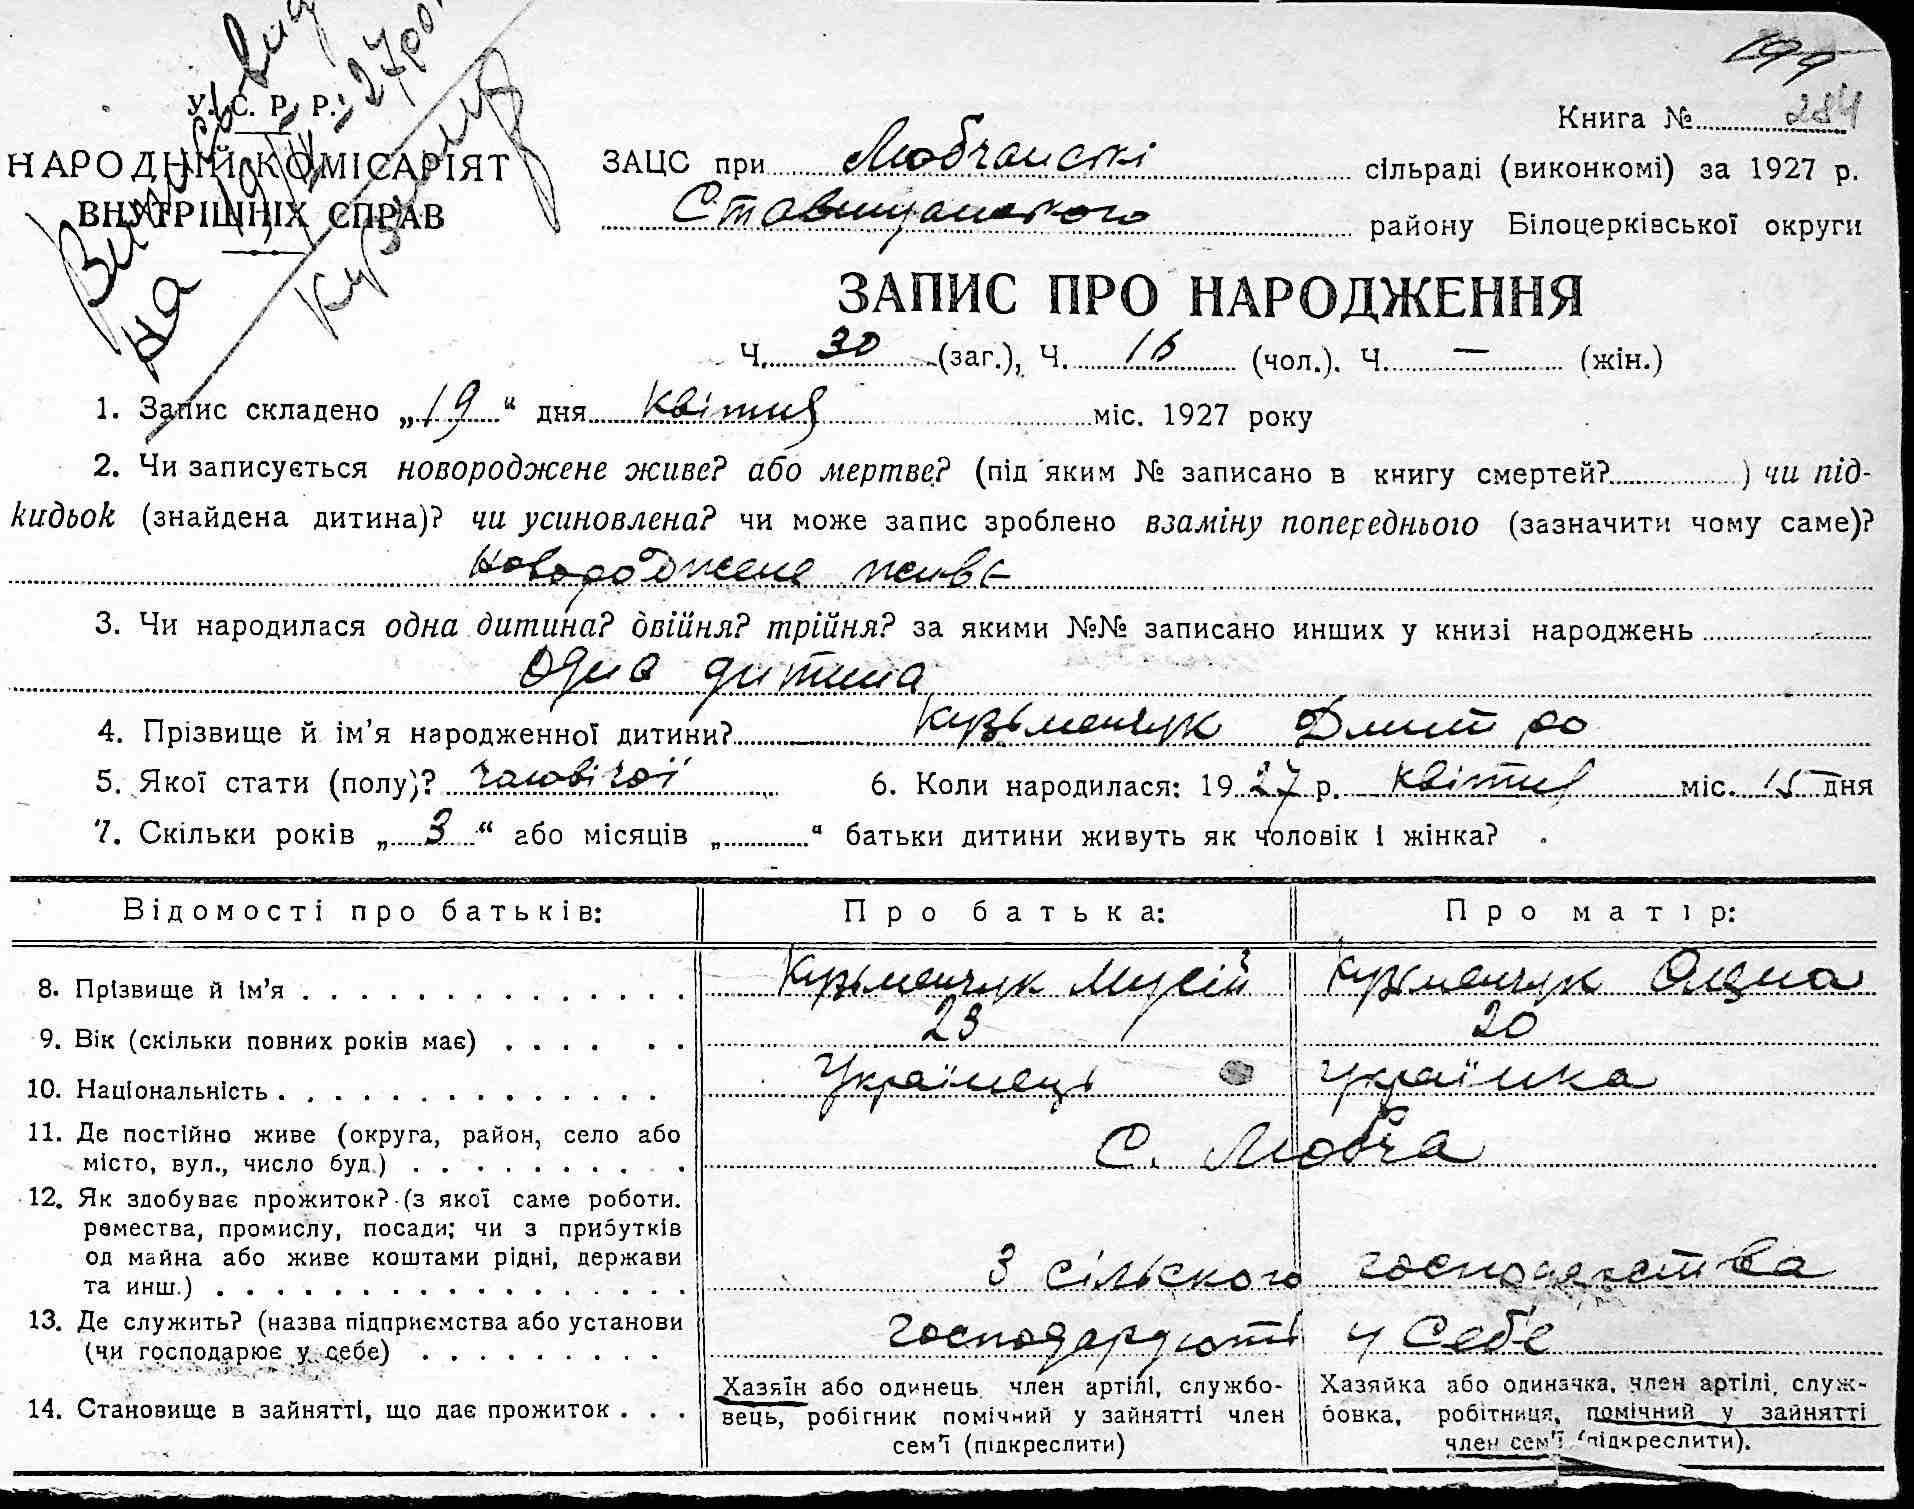 199
Випись вид
на 19/IV-27 рок
У. С. Р. Р.
Книга № 284
НАРОДНІЙ КОМІСАРІЯТ
ВНУТРІШНІХ СПРАВ
ЗАЦС при Любчанські сільраді (виконкомі) за 1927 р.
Ставищанського району Білоцерківської округи
ЗАПИС ПРО НАРОДЖЕННЯ
Ч. 30 (заг.), Ч. 16 (чол.). Ч. — (жін.)
1. Запис складено „19“ дня квітня міс. 1927 року
2. Чи записується новороджене живе? або мертве? (під яким № записано в книгу смертей? ) чи під-
кидьок (знайдена дитина)? чи усиновлена? чи може запис зроблено взаміну попереднього (зазначити чому саме)?
Новороджене живе
3. Чи народилася одна дитина? двійня? трійня? за якими №№ записано инших у книзі народжень
Одна дитина
4. Прізвище й ім’я народженної дитини? Кузьменчук Дмитро
5. Якої стати (полу)? чоловічої 6. Коли народилася: 1927 р. квітня міс. 15 дня
7. Скільки років „3“ або місяців „ “ батьки дитини живуть як чоловік і жінка?
Відомості про батьків: Про батька: Про матір:
8. Прізвище й ім’я Кузьменчук Мусій Кузьменчук Олена
9. Вік (скільки повних років має) 23 20
10. Національність Українець Українка
11. Де постійно живе (округа, район, село або
місто, вул., число буд.) С. Любча
12. Як здобуває прожиток? (з якої саме роботи.
ремества, промислу, посади; чи з прибутків
од майна або живе коштами рідні, держави
та инш.) З сільского господарства
13. Де служить? (назва підприємства або установи
(чи господарює у себе) господарюють у себе
14. Становище в зайнятті, що дає прожиток
Хазяїн або одинець, член артілі, службо-
вець, робітник помічний у зайнятті член
сем’ї (підкреслити)
Хазяйка або одиначка, член артілі, служ-
бовка, робітниця, помічний у зайнятті
член сем’ї (підкреслити).